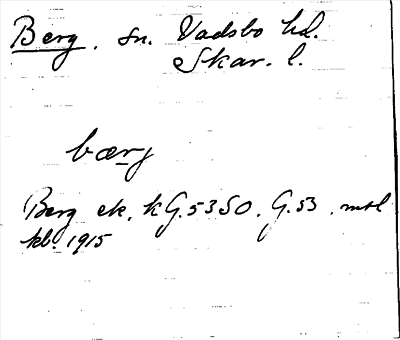 Berg. sn. Vadsbo hd.
Skar. l.
bærg
Berg ek. kG.53SO. G.53. mtl
kb. 1915